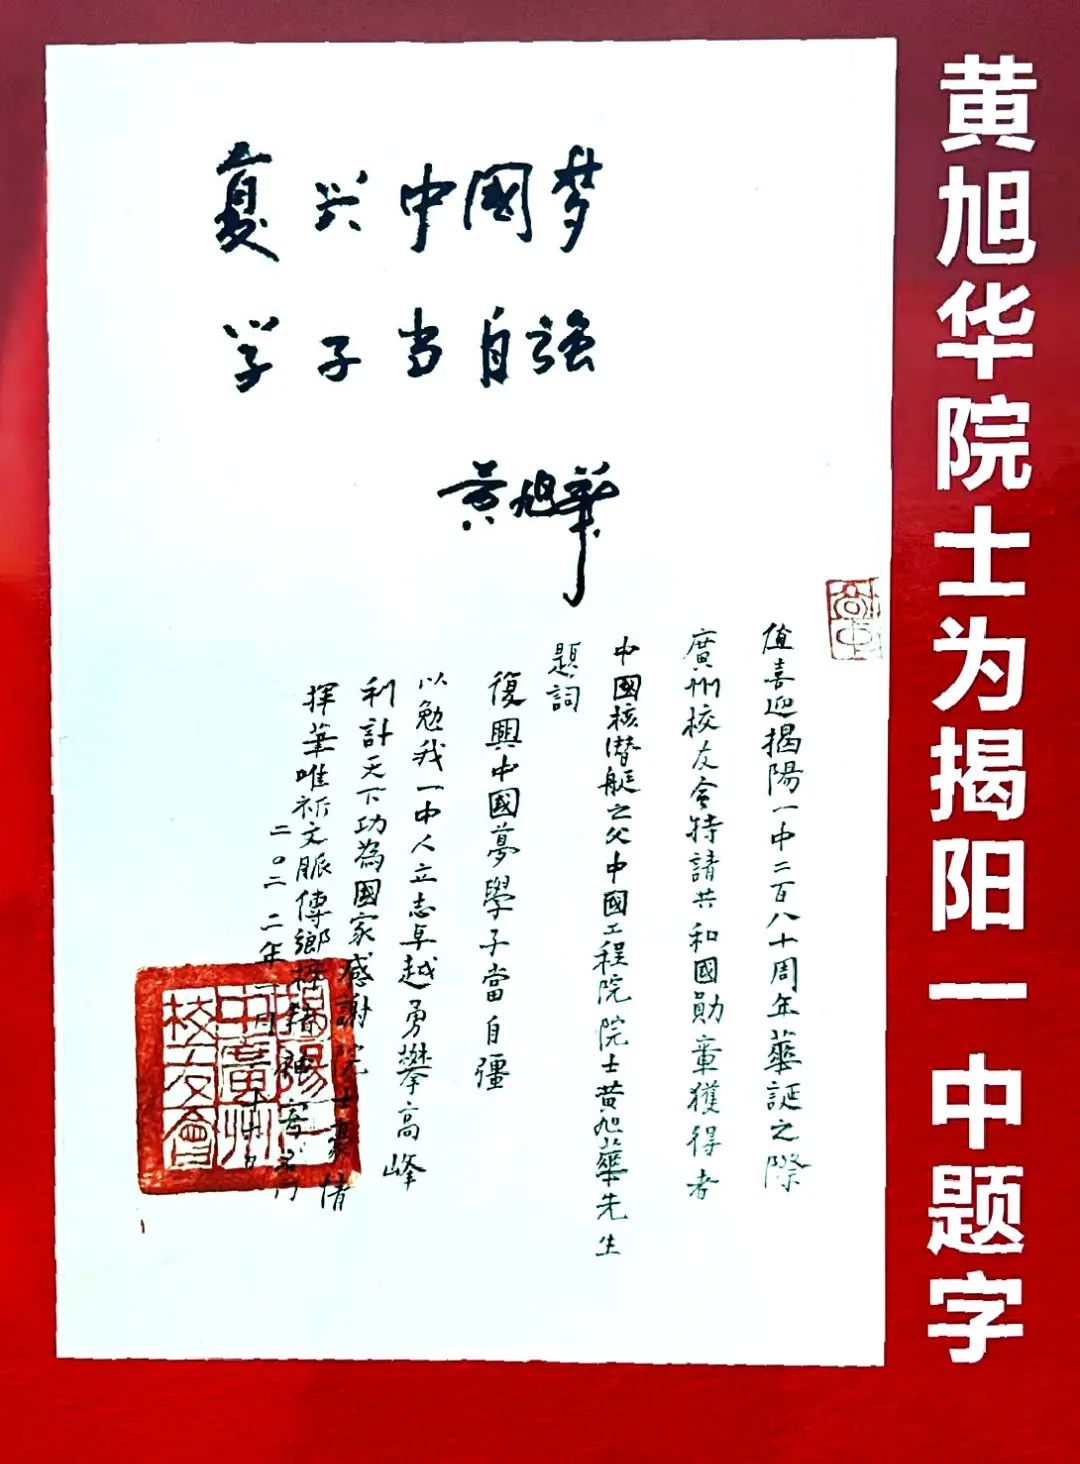 复兴中國梦
学子当自强
黄旭華
值喜迎揭陽一中二百八十周年華誕之際
廣州校友会特請共和國勛章獲得者
中國核潜艇之父中國工程院院士黄旭華先生
題詞
復興中國夢學子當自彊
以勉我一中人立志卓越勇攀高峰
利計天下功為國家感謝院士豪情
揮華唯祈文脈傳鄉梓
二〇二二年
揭陽一中廣州校友會
黄旭华院士为揭阳一中题字